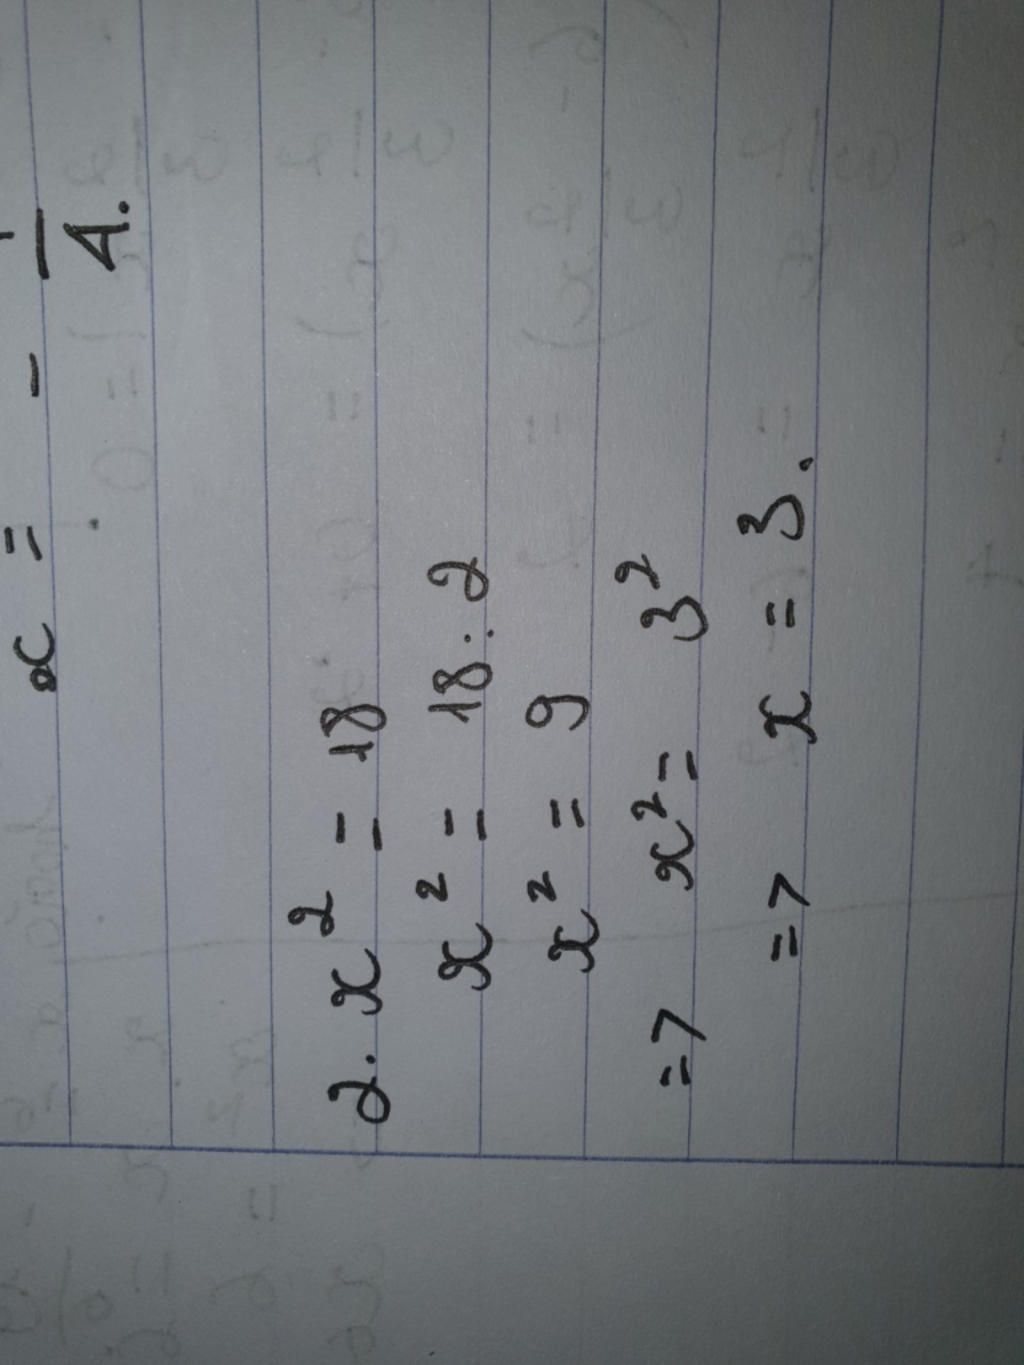 x = - 1/4.
2. x² = 18
x² = 18 : 2
x² = 9
=> x² = 3²
=> x = 3.